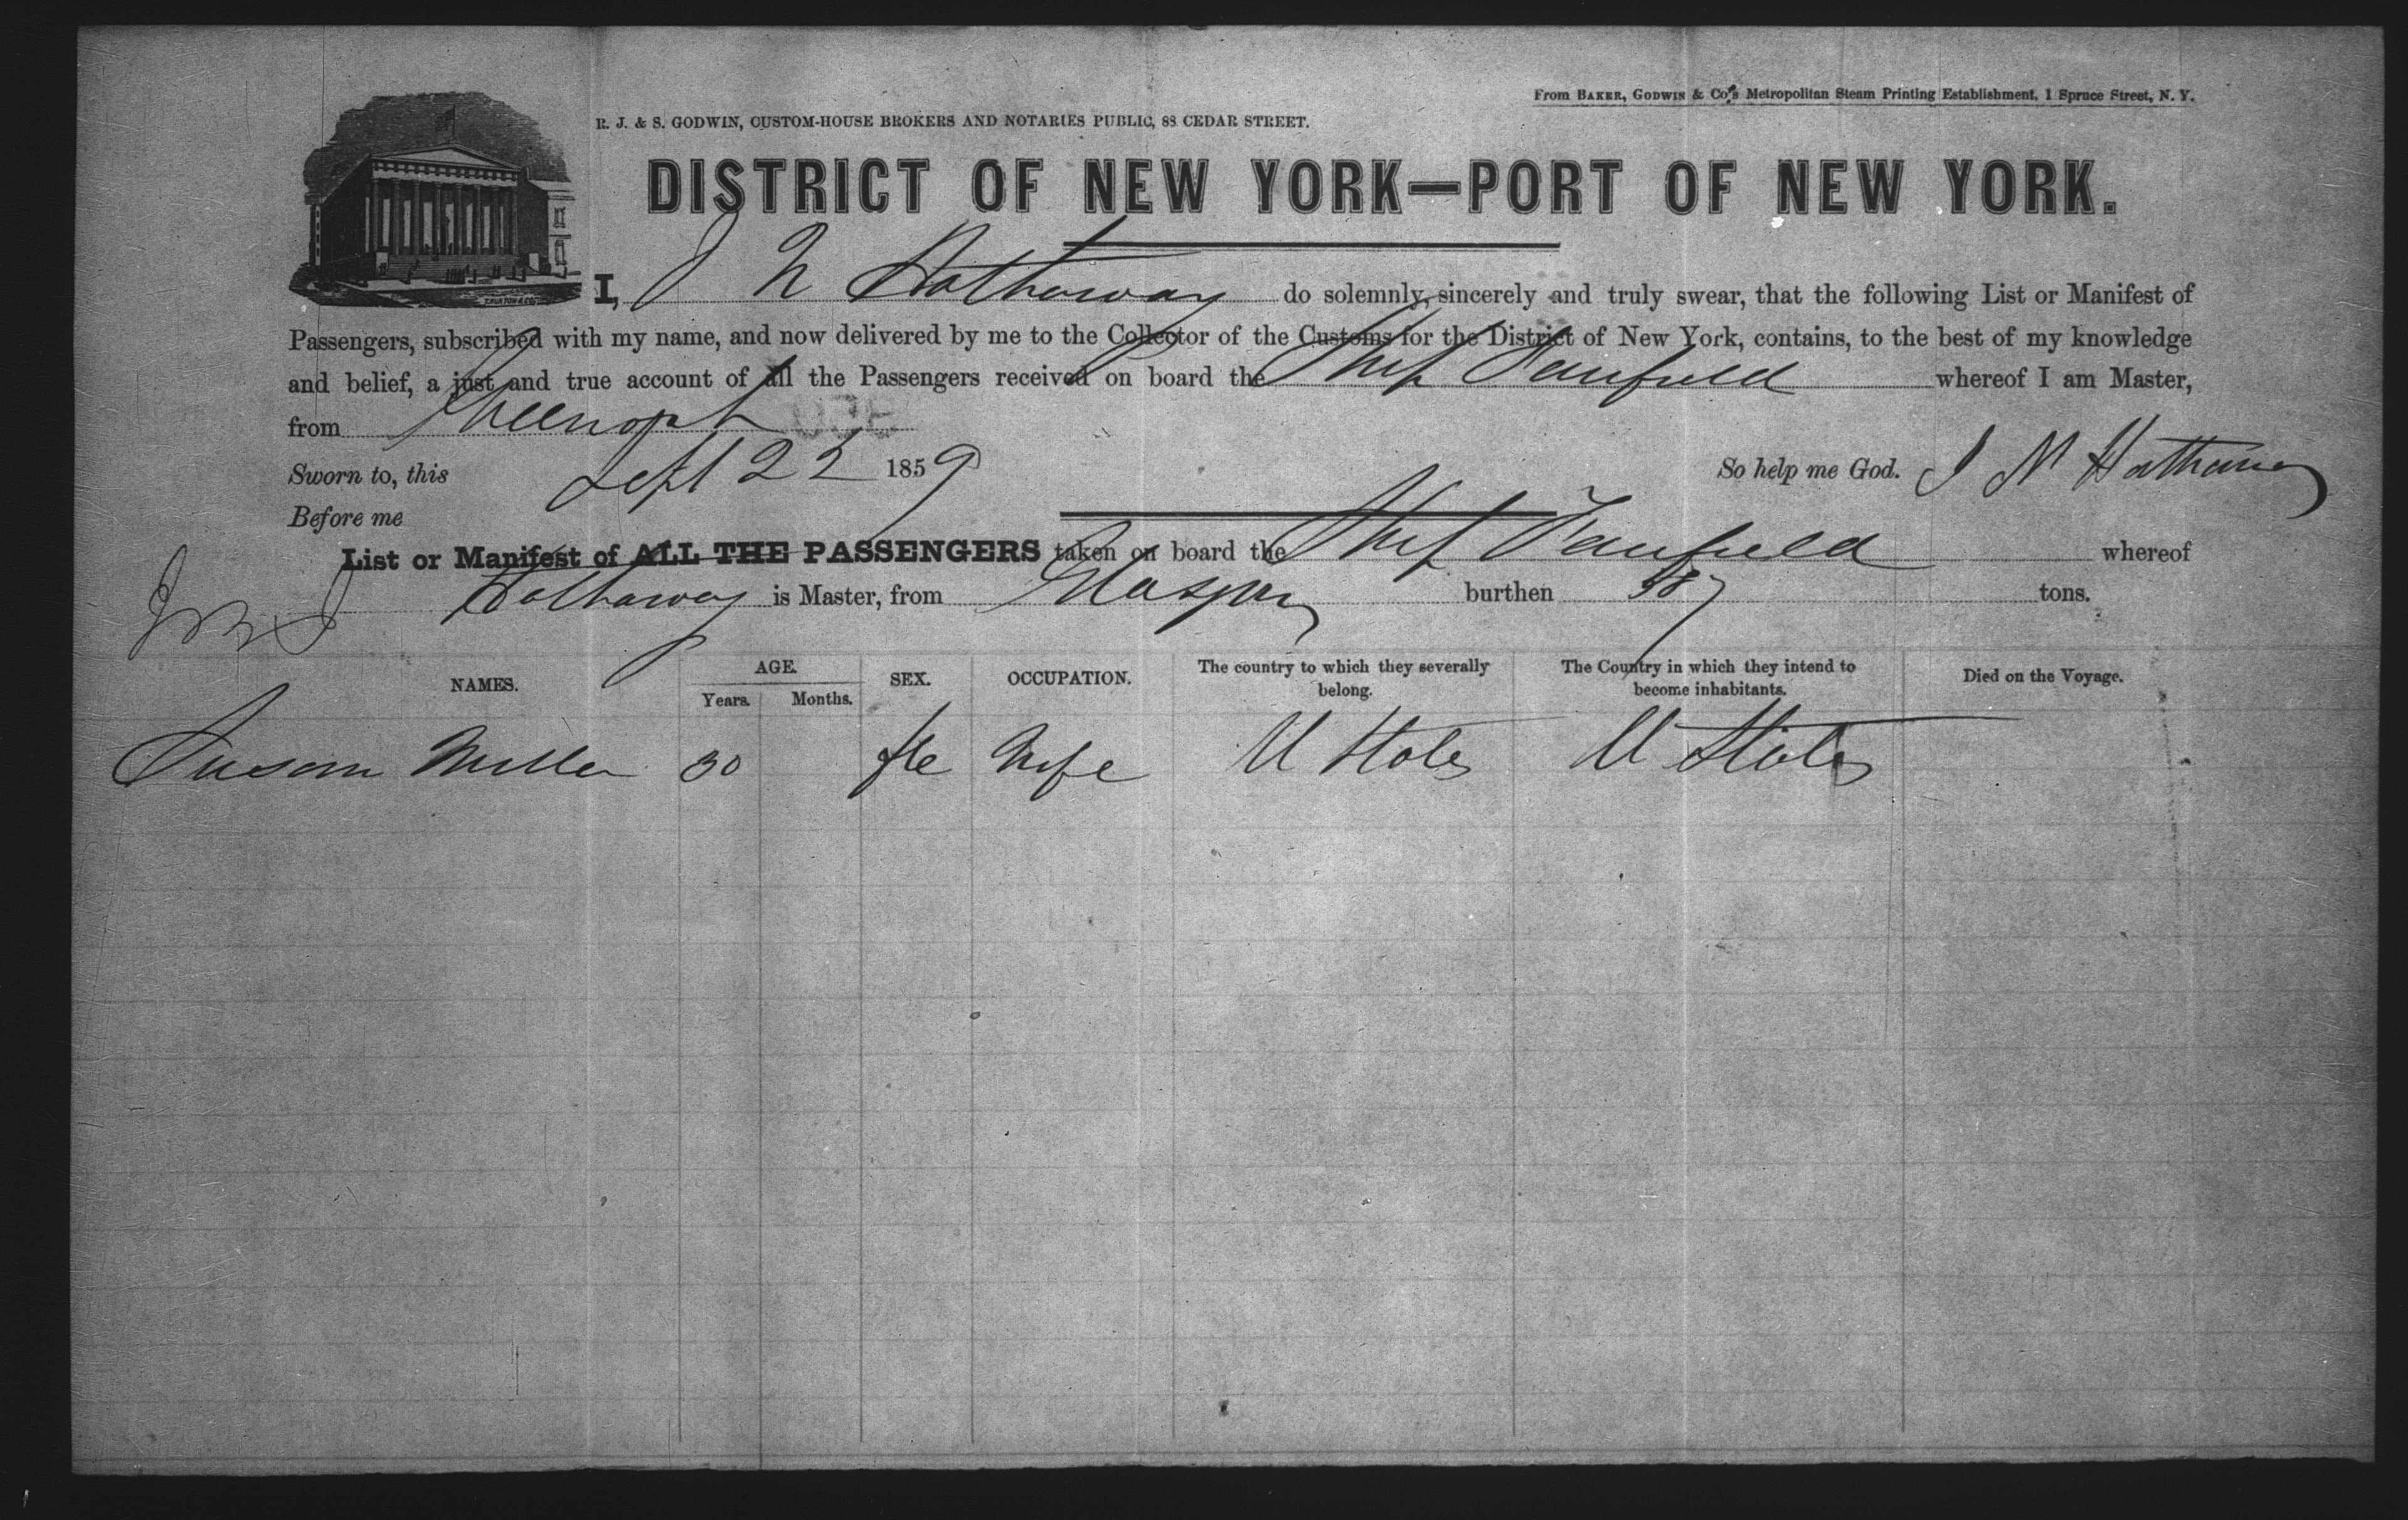 From BAKER, GODWIN & Co's Metropolitan Steam Printing Establishment, 1 Spruce Street, N. Y.
R. J. & S. GODWIN, CUSTOM-HOUSE BROKERS AND NOTARIES PUBLIC, 88 CEDAR STREET.
DISTRICT OF NEW YORK—PORT OF NEW YORK.
I, J N Hathaway do solemnly, sincerely and truly swear, that the following List or Manifest of
Passengers, subscribed with my name, and now delivered by me to the Collector of the Customs for the District of New York, contains, to the best of my knowledge
and belief, a just and true account of all the Passengers received on board the Ship Fanfield whereof I am Master,
from
Sworn to, this Sept 22 1859 So help me God. J N Hathaway
Before me
List or Manifest of ALL THE PASSENGERS taken on board the Ship Fanfield whereof
Hathaway is Master, from Glasgow burthen tons.
NAMES. AGE. Years. Months. SEX. OCCUPATION. The country to which they severally belong. The Country in which they intend to become inhabitants. Died on the Voyage.
Susan Miller 30 fle Wife U States U States